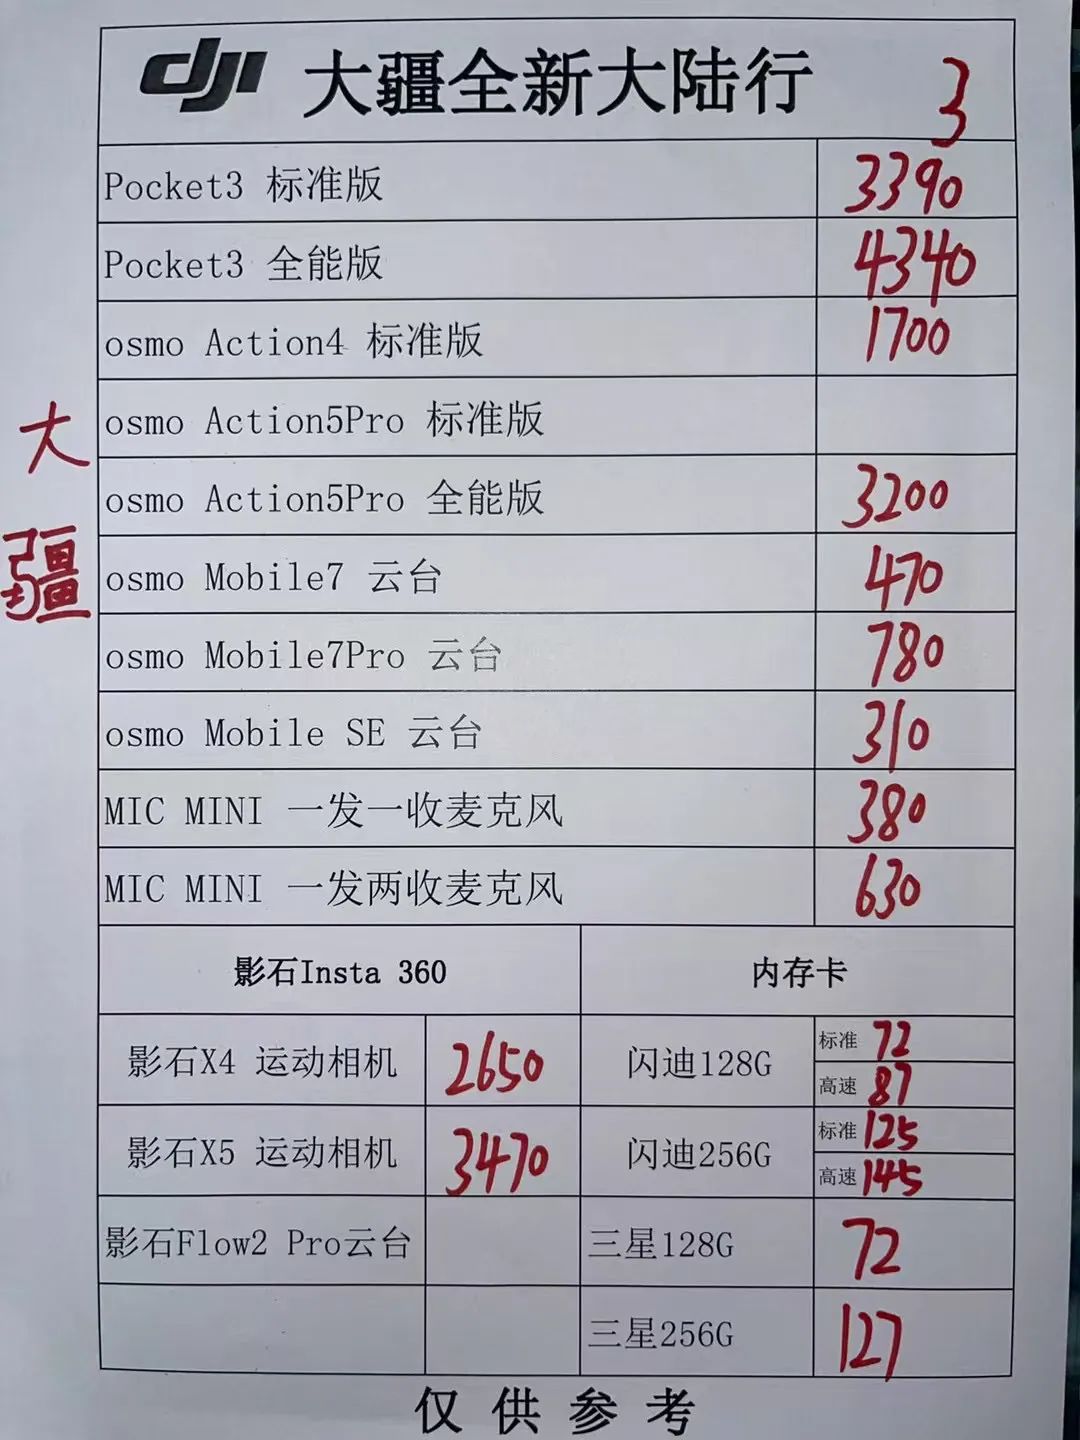 dji 大疆全新大陆行 3
Pocket3 标准版 3390
Pocket3 全能版 4340
osmo Action4 标准版 1700
osmo Action5Pro 标准版
osmo Action5Pro 全能版 3200
osmo Mobile7 云台 470
osmo Mobile7Pro 云台 780
osmo Mobile SE 云台 310
MIC MINI 一发一收麦克风 380
MIC MINI 一发两收麦克风 630
大
疆
影石Insta 360 内存卡
影石X4 运动相机 2650 闪迪128G 标准 72
高速 87
影石X5 运动相机 3470 闪迪256G 标准 125
高速 145
影石Flow2 Pro云台 三星128G 72
三星256G 127
仅供参考